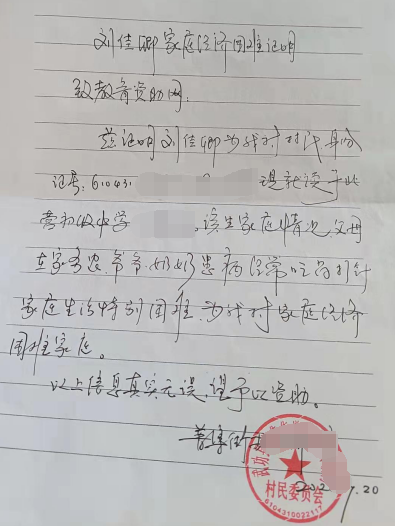 刘佳卿家庭经济困难证明
致教育资助网:
兹证明刘佳卿为我村村民身份
证号:610431 现就读于此
营初级中学 。该生家庭情况父母
在家务农.爷爷.奶奶患病经常吃药打针
家庭生活特别困难.为我村家庭经济
困难家庭。
以上信息真实无误,望予以资助。
普集街
村民委员会
6104310022117
7.20